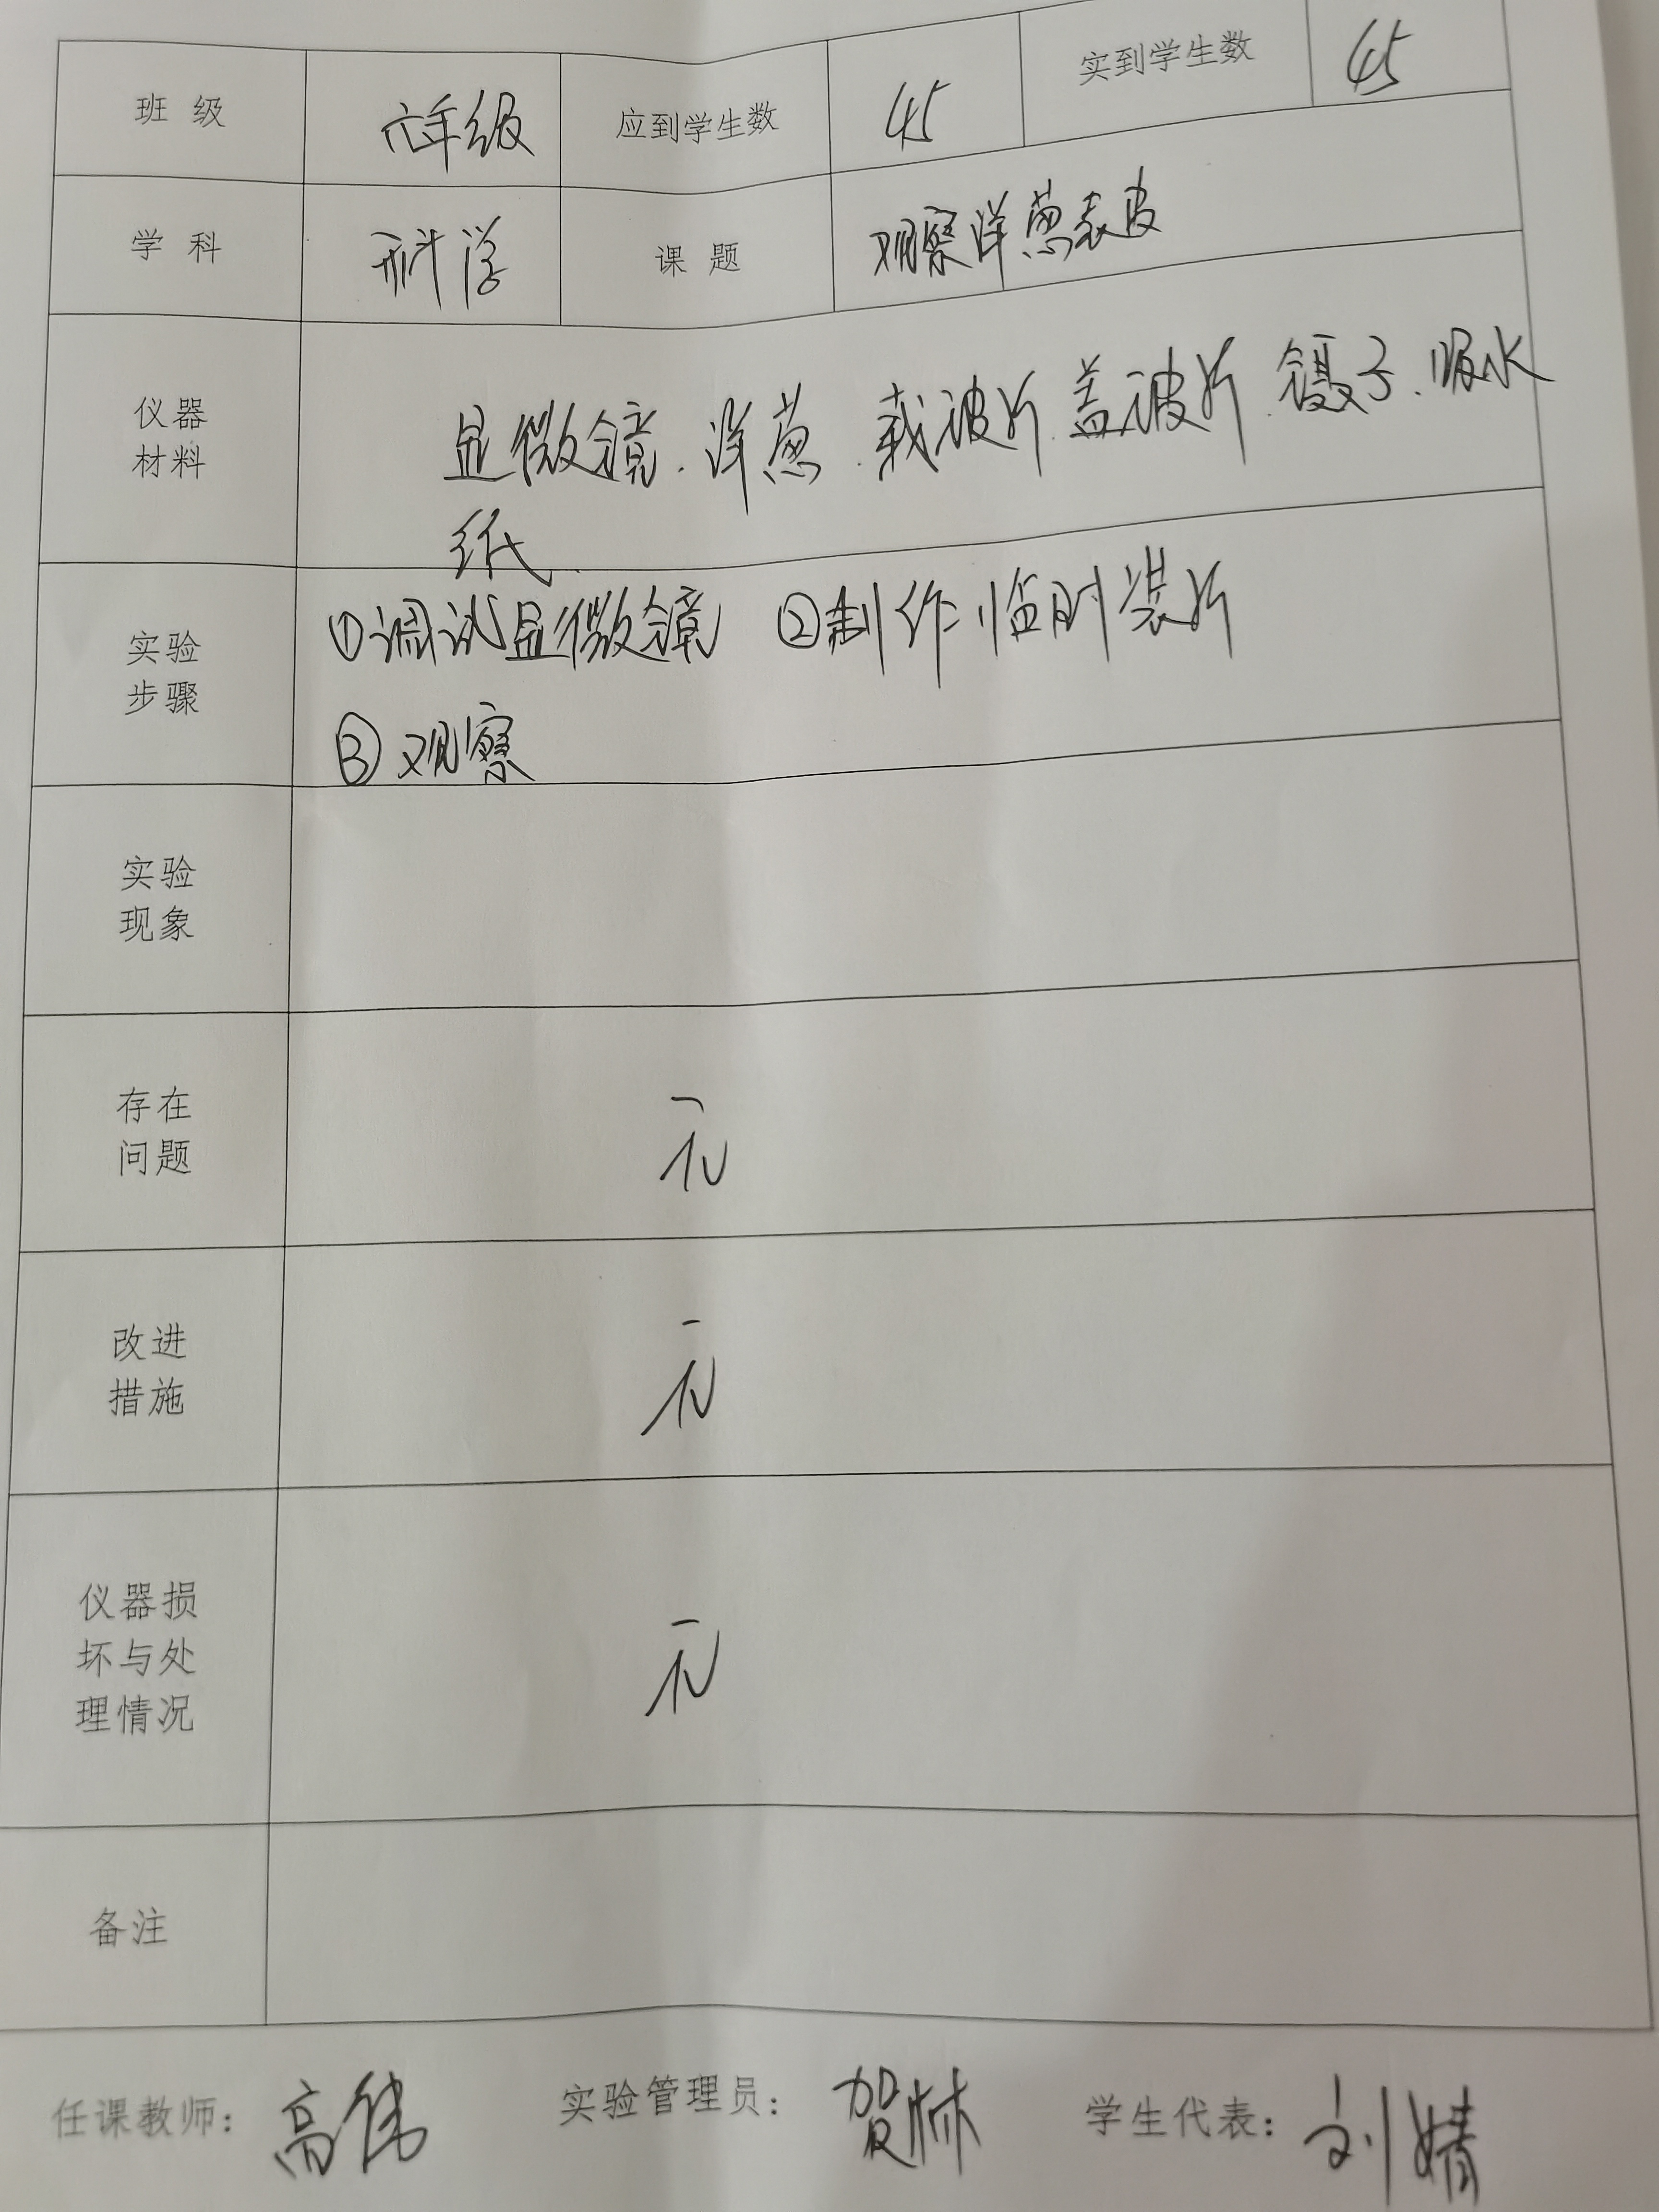 班 级 六年级 应到学生数 45 实到学生数 45
学 科 科学 课 题 观察洋葱表皮
仪器
材料
显微镜.洋葱.载玻片.盖玻片.镊子.吸水
纸.
实验
步骤
①调试显微镜 ②制作临时装片
③观察
实验
现象
存在
问题
无
改进
措施
无
仪器损
坏与处
理情况
无
备注
任课教师：高伟 实验管理员：贺林 学生代表：刘婧